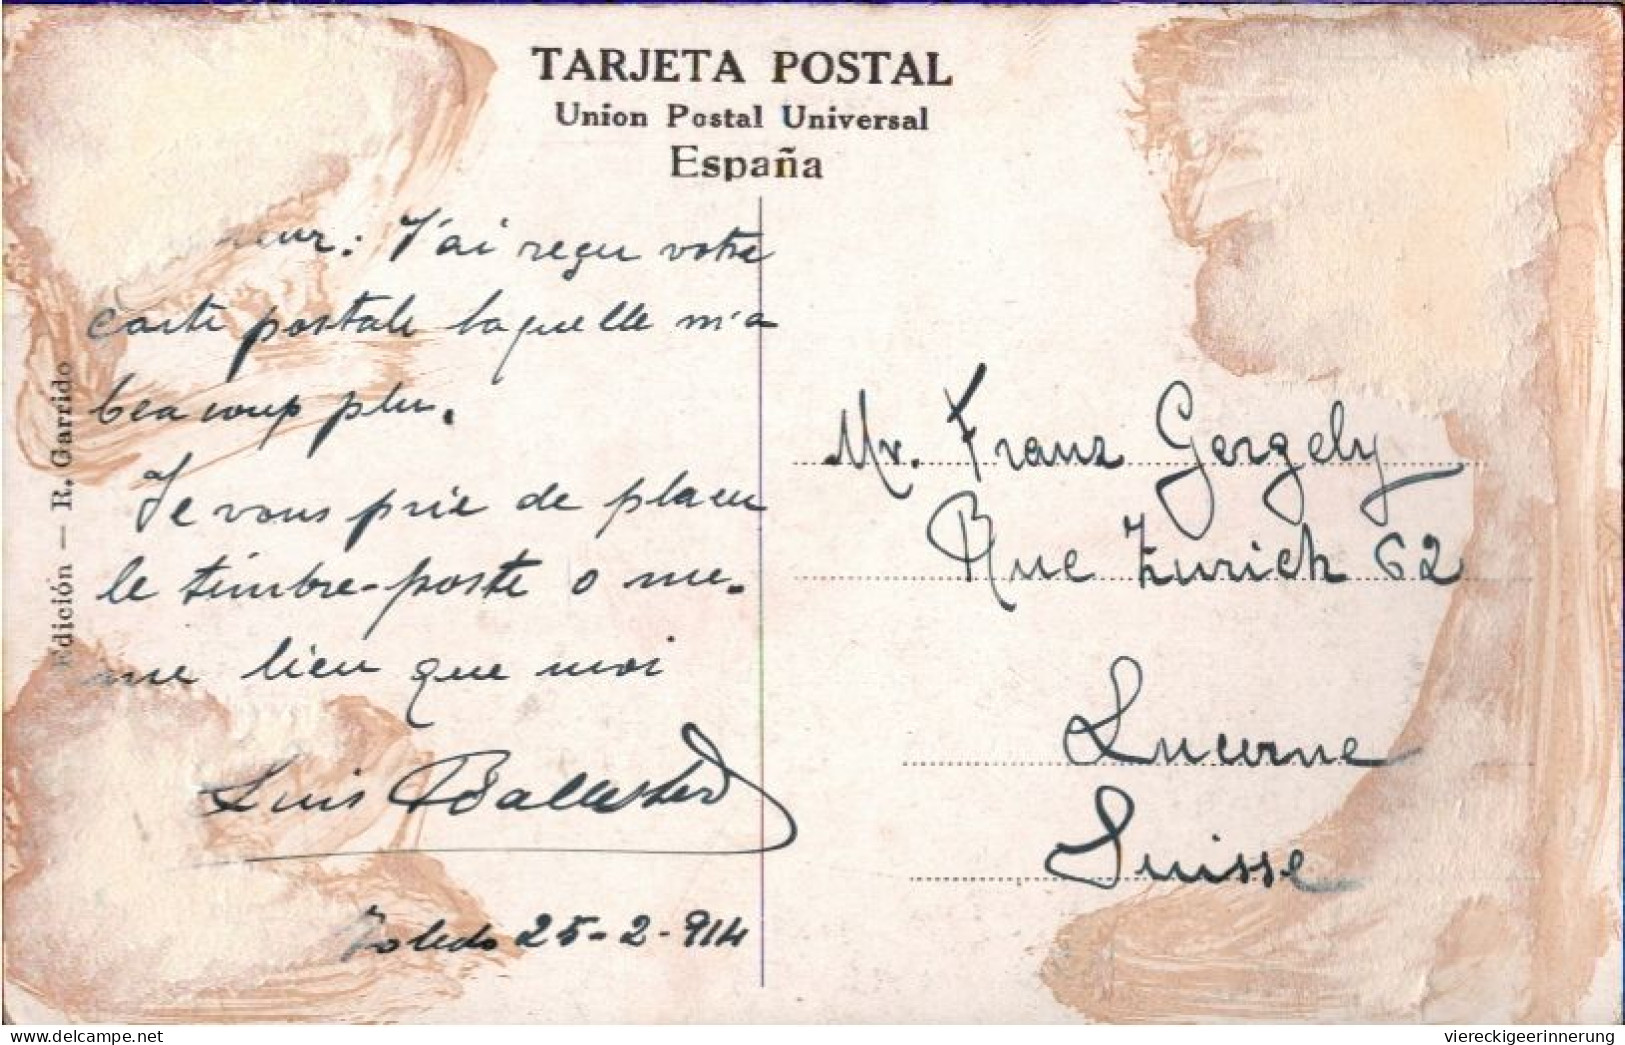 TARJETA POSTAL
Union Postal Universal
España
eur: J'ai reçu votre
carte postale laquelle m'a
beaucoup plu.
Je vous prie de placer
le timbre-poste o me-
me lieu que moi
Luis Ballester
Toledo 25-2-914
Edición — R. Garrido
Mr. Franz Gergely
Rue Zurich 62
Lucerne
Suisse
delcampe.net
viereckigeerinnerung